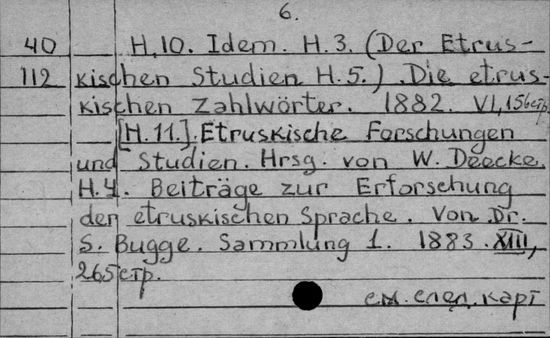 6.
40 H.10. Idem. H.3. (Der Etrus-
112 kischen Studien H.5.) Die etrus-
kischen Zahlwörter. 1882. VI, 156 стр.
[H.11.] Etruskische Forschungen
und Studien. Hrsg. von W. Deecke.
H.4. Beiträge zur Erforschung
der etruskischen Sprache. Von Dr.
S. Bugge. Sammlung 1. 1883. XIII,
265 стр.
см. след. карт